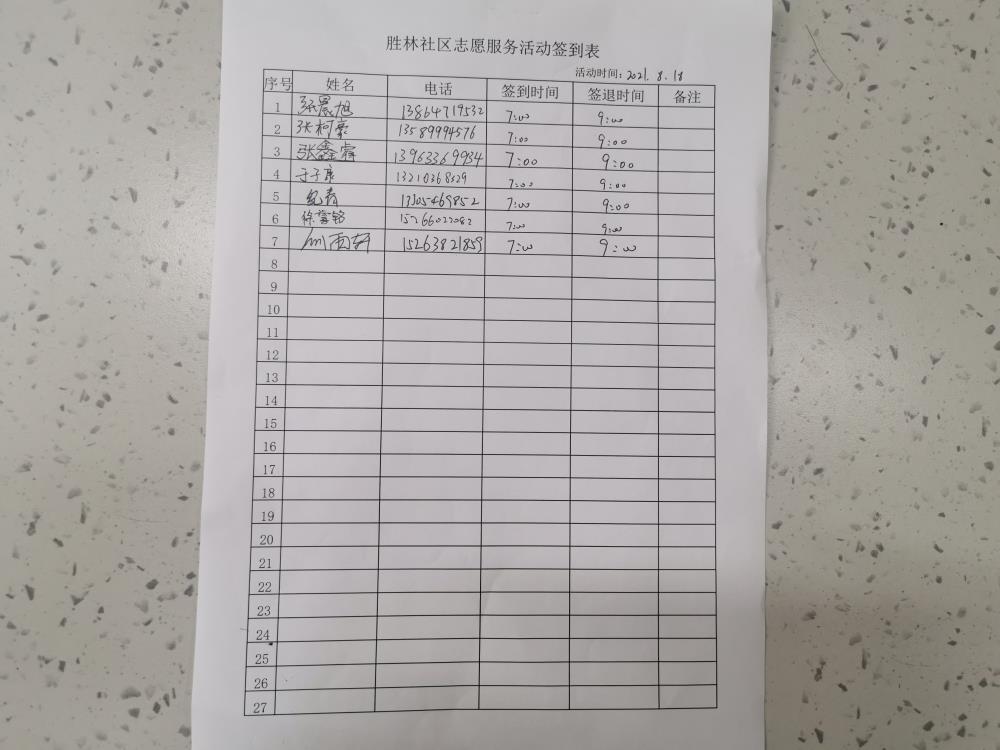 胜林社区志愿服务活动签到表
活动时间：2021.8.18
序号 姓名 电话 签到时间 签退时间 备注
1 张晨旭 13864719532 7:00 9:00
2 张柯豪 13589994576 7:00 9:00
3 张鑫睿 13963369934 7:00 9:00
4 于子康 13210368629 7:00 9:00
5 纪青 13305469852 7:00 9:00
6 徐誉铭 15266022082 7:00 9:00
7 雨轩 15263821859 7:00 9:00
8
9
10
11
12
13
14
15
16
17
18
19
20
21
22
23
24
25
26
27